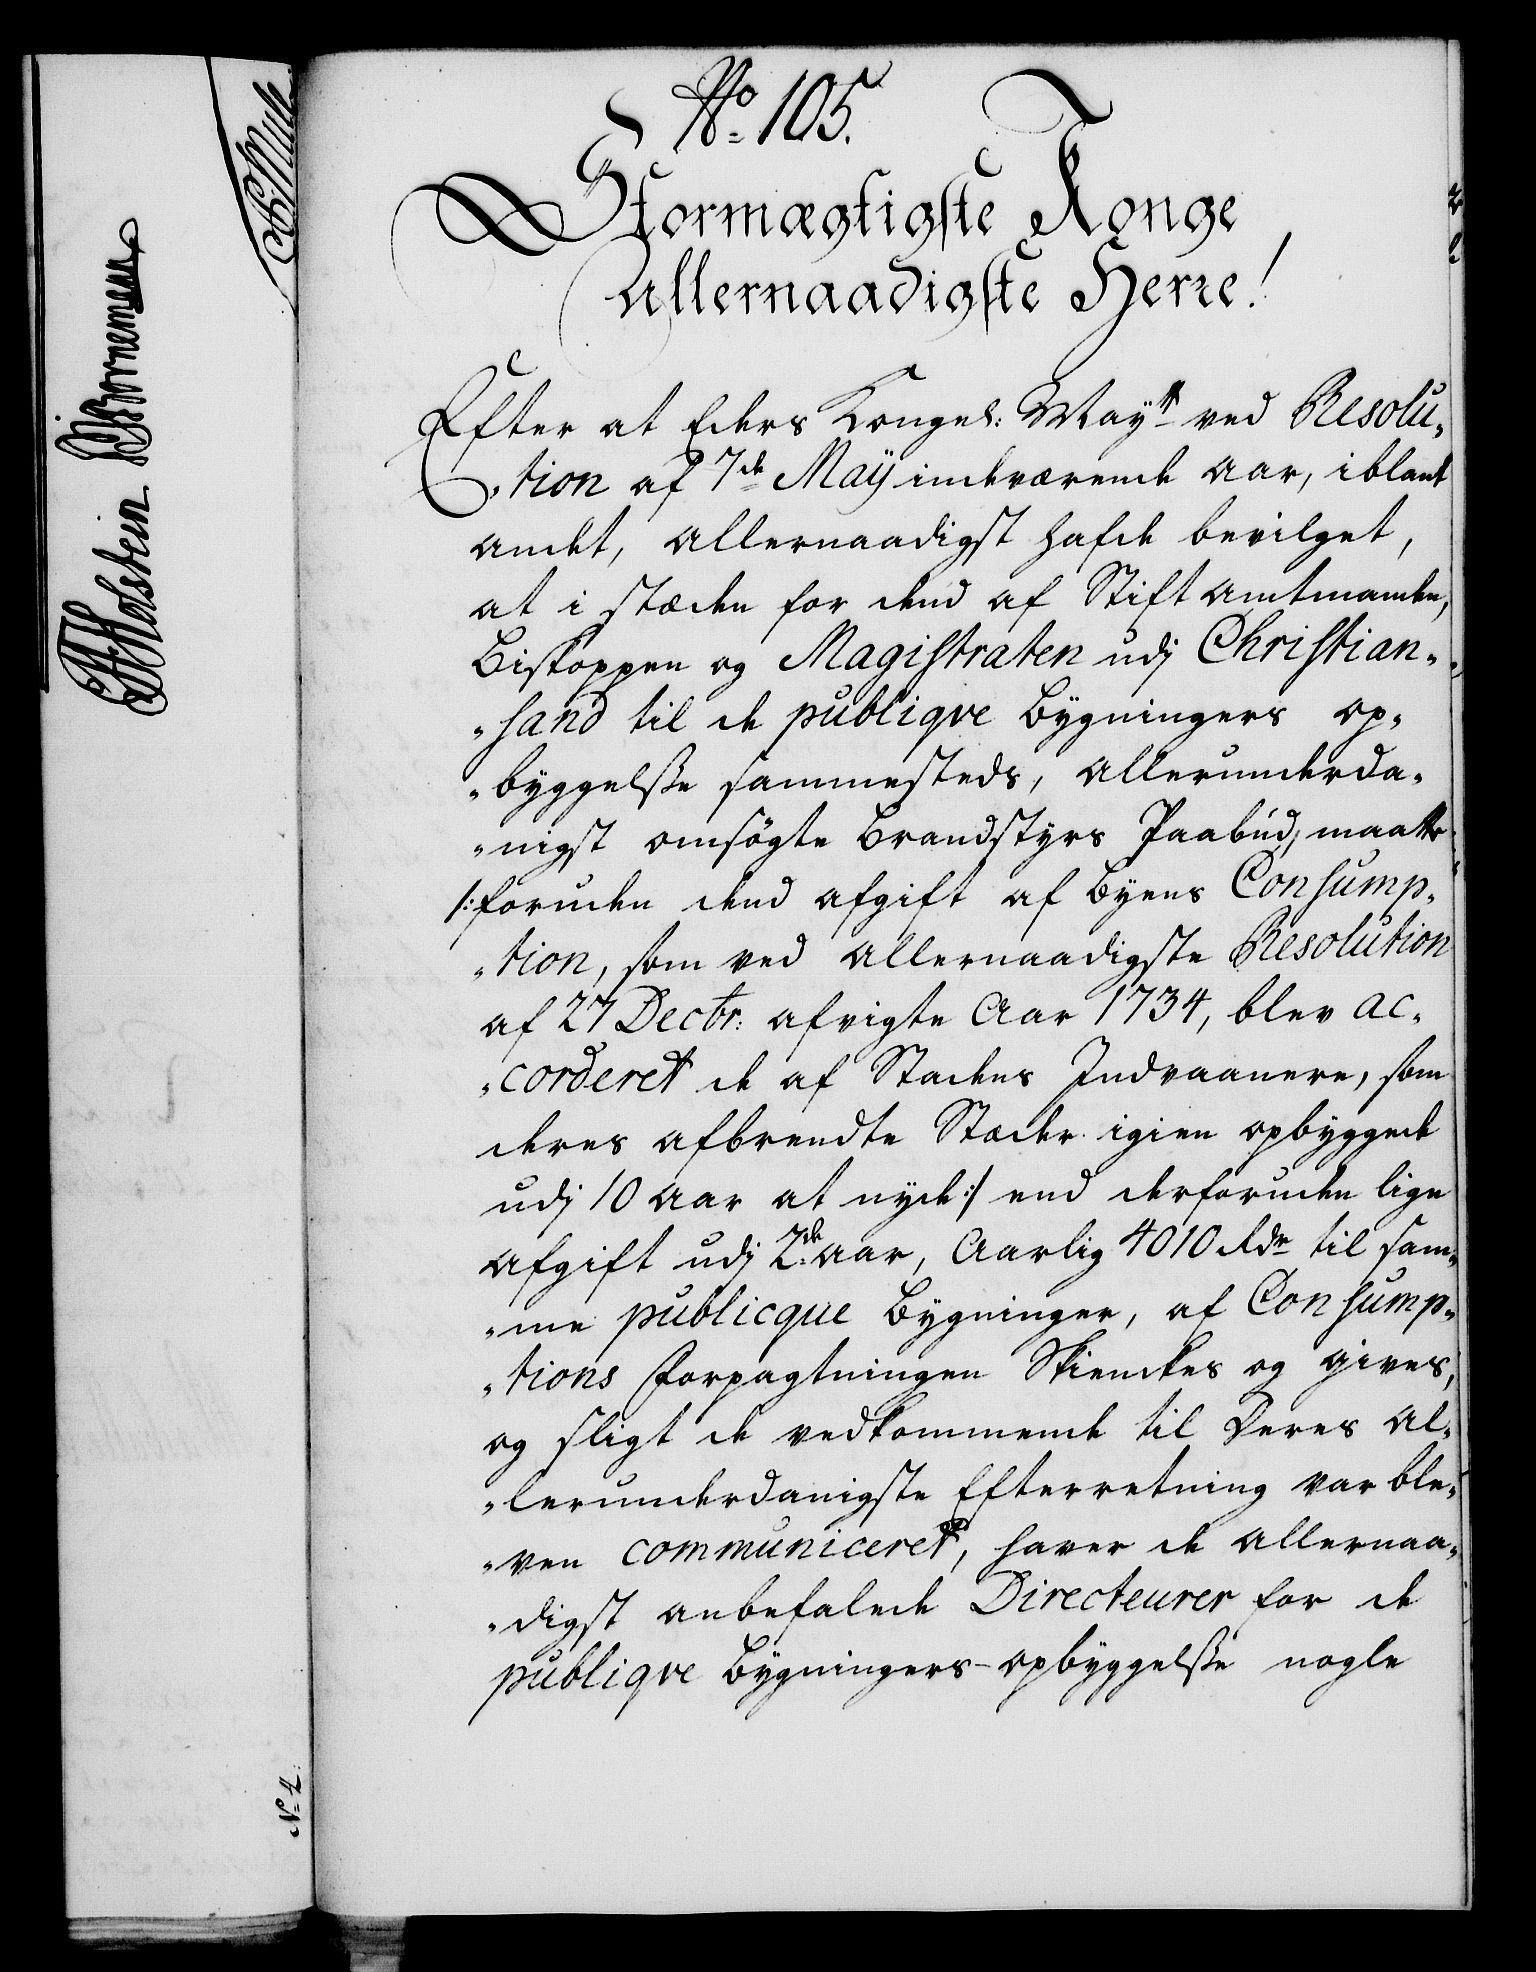 No. 105.
Stormægtigste Konge
Allernaadigste Herre!
Efter at Eders Kongel: Mayt ved Resolu„
„tion af 7de Maÿ indeværende Aar, iblant
andet, allernaadigst hafde bevilget,
at i stæden for dend af Stiftamtmanden,
Biskoppen og Magistraten udj Christian„
„sand til de publiqve Bÿgningers op„
„byggelsse sammesteds, allerunderda„
„nigst omsögte Brandstÿrs Paabúd, maatte
/:foruden dend afgift af Byens Consump„
„tion, som ved allernaadigste Resolution
af 27 Decbr: afvigte Aar 1734, blev ac„
„corderet de af Stadens Indvaanere, som
deres afbrendte Stæder igien opbyggede
udj 10 Aar at nyde:/ end derforuden lige
afgift udj 2de Aar, Aarlig 4010 Rdr til sam„
„me publicque Bygninger, af Consump„
„tions Forpagtningen Skienckes og gives,
og sligt de vedkommende til Deres al„
„lerunderdanigste Efterretning var ble„
„ven communiceret, haver de allernaa„
„digst anbefalede Directeurer for de
publiqve Bÿgningers-opbyggelsse nogle
JL Holstein.
B Bornemann
No 4.